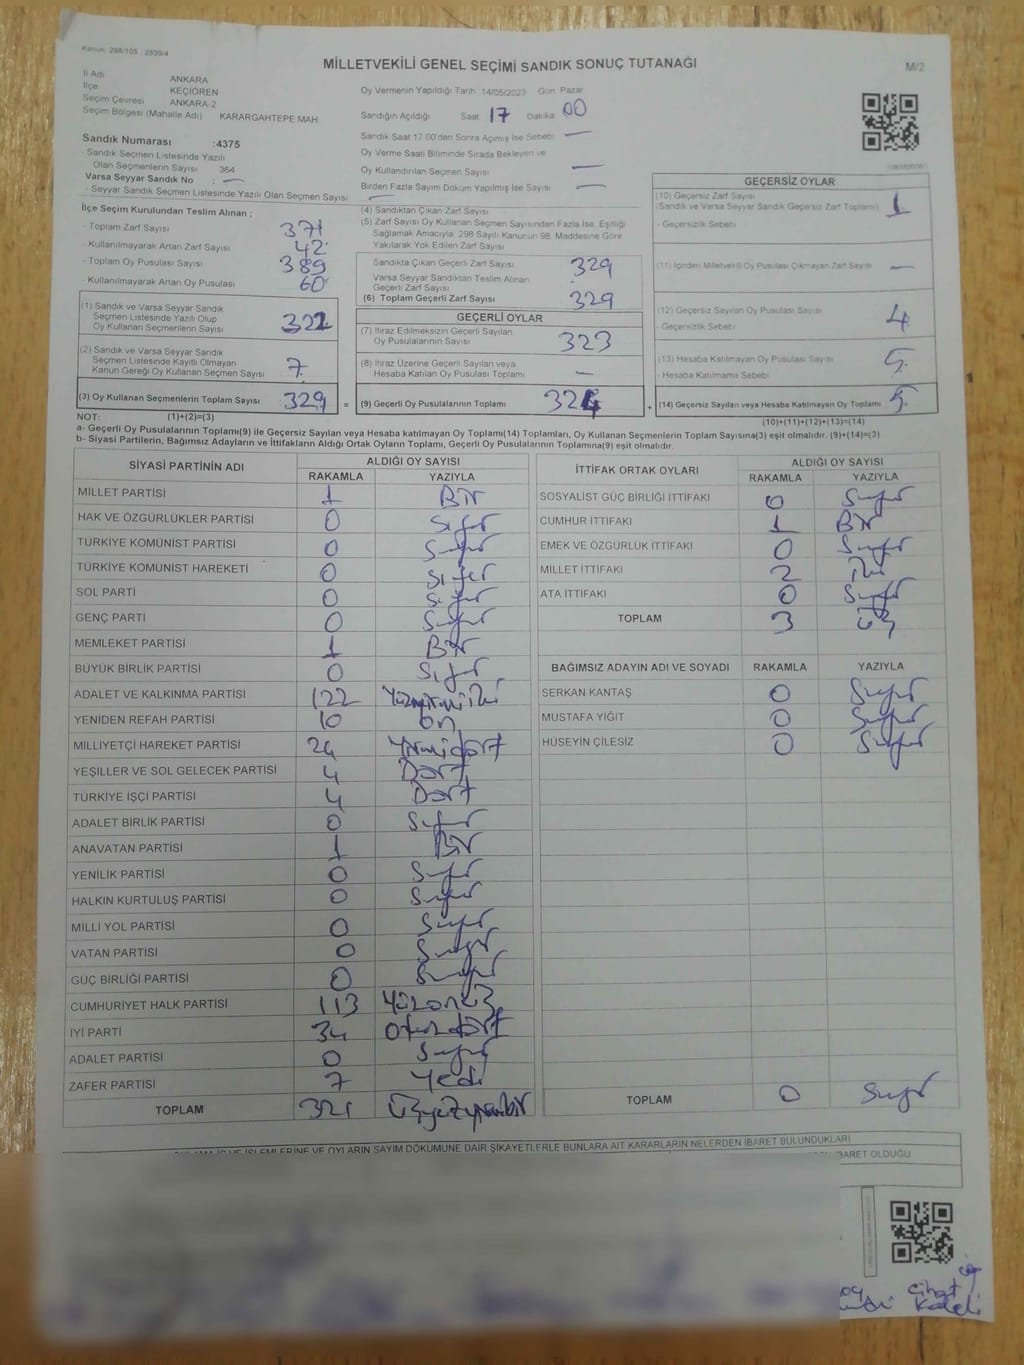 Kanun: 298/105 2839/4
MİLLETVEKİLİ GENEL SEÇİMİ SANDIK SONUÇ TUTANAĞI
M/2
İl Adı ANKARA
İlçe KEÇİÖREN
Seçim Çevresi ANKARA-2
Seçim Bölgesi (Mahalle Adı) KARARGAHTEPE MAH
Oy Vermenin Yapıldığı Tarih 14/05/2023 Gün: Pazar
Sandığın Açıldığı Saat 17 Dakika 00
Sandık Saat 17.00'den Sonra Açılmış İse Sebebi —
Oy Verme Saati Bitiminde Sırada Bekleyen ve
Oy Kullandırılan Seçmen Sayısı —
Birden Fazla Sayım Döküm Yapılmış İse Sayısı —
Sandık Numarası :4375
- Sandık Seçmen Listesinde Yazılı
Olan Seçmenlerin Sayısı 364
Varsa Seyyar Sandık No : —
- Seyyar Sandık Seçmen Listesinde Yazılı Olan Seçmen Sayısı —
İlçe Seçim Kurulundan Teslim Alınan ;
- Toplam Zarf Sayısı 371
- Kullanılmayarak Artan Zarf Sayısı 42
- Toplam Oy Pusulası Sayısı 389
- Kullanılmayarak Artan Oy Pusulası 60
(1) Sandık ve Varsa Seyyar Sandık
Seçmen Listesinde Yazılı Olup
Oy Kullanan Seçmenlerin Sayısı 322
(2) Sandık ve Varsa Seyyar Sandık
Seçmen Listesinde Kayıtlı Olmayan
Kanun Gereği Oy Kullanan Seçmen Sayısı 7
(3) Oy Kullanan Seçmenlerin Toplam Sayısı 329 =
(4) Sandıktan Çıkan Zarf Sayısı
(5) Zarf Sayısı Oy Kullanan Seçmen Sayısından Fazla İse, Eşitliği
Sağlamak Amacıyla, 298 Sayılı Kanunun 98. Maddesine Göre
Yakılarak Yok Edilen Zarf Sayısı
Sandıkta Çıkan Geçerli Zarf Sayısı 329
Varsa Seyyar Sandıktan Teslim Alınan
Geçerli Zarf Sayısı
(6) Toplam Geçerli Zarf Sayısı 329
GEÇERLİ OYLAR
(7) İtiraz Edilmeksizin Geçerli Sayılan
Oy Pusulalarının Sayısı 323
(8) İtiraz Üzerine Geçerli Sayılan veya
Hesaba Katılan Oy Pusulası Toplamı —
(9) Geçerli Oy Pusulalarının Toplamı 324 +
GEÇERSİZ OYLAR
(10) Geçersiz Zarf Sayısı
(Sandık ve Varsa Seyyar Sandık Geçersiz Zarf Toplamı) 1
- Geçersizlik Sebebi
(11) İçinden Milletvekili Oy Pusulası Çıkmayan Zarf Sayısı —
(12) Geçersiz Sayılan Oy Pusulası Sayısı 4
- Geçersizlik Sebebi
(13) Hesaba Katılmayan Oy Pusulası Sayısı 5
- Hesaba Katılmama Sebebi
(14) Geçersiz Sayılan veya Hesaba Katılmayan Oy Toplamı 5
NOT: (1)+(2)=(3) (10)+(11)+(12)+(13)=(14)
a- Geçerli Oy Pusulalarının Toplamı(9) ile Geçersiz Sayılan veya Hesaba katılmayan Oy Toplamı(14) Toplamları, Oy Kullanan Seçmenlerin Toplam Sayısına(3) eşit olmalıdır. (9)+(14)=(3)
b- Siyasi Partilerin, Bağımsız Adayların ve İttifakların Aldığı Ortak Oyların Toplamı, Geçerli Oy Pusulalarının Toplamına(9) eşit olmalıdır.
SİYASİ PARTİNİN ADI ALDIĞI OY SAYISI
RAKAMLA YAZIYLA
MİLLET PARTİSİ 1 Bir
HAK VE ÖZGÜRLÜKLER PARTİSİ 0 Sıfır
TÜRKİYE KOMÜNİST PARTİSİ 0 Sıfır
TÜRKİYE KOMÜNİST HAREKETİ 0 Sıfır
SOL PARTİ 0 Sıfır
GENÇ PARTİ 0 Sıfır
MEMLEKET PARTİSİ 1 Bir
BÜYÜK BİRLİK PARTİSİ 0 Sıfır
ADALET VE KALKINMA PARTİSİ 122 Yüzyirmiiki
YENİDEN REFAH PARTİSİ 10 On
MİLLİYETÇİ HAREKET PARTİSİ 24 Yirmidört
YEŞİLLER VE SOL GELECEK PARTİSİ 4 Dört
TÜRKİYE İŞÇİ PARTİSİ 4 Dört
ADALET BİRLİK PARTİSİ 0 Sıfır
ANAVATAN PARTİSİ 1 Bir
YENİLİK PARTİSİ 0 Sıfır
HALKIN KURTULUŞ PARTİSİ 0 Sıfır
MİLLİ YOL PARTİSİ 0 Sıfır
VATAN PARTİSİ 0 Sıfır
GÜÇ BİRLİĞİ PARTİSİ 0 Sıfır
CUMHURİYET HALK PARTİSİ 113 Yüzonüç
İYİ PARTİ 34 Otuzdört
ADALET PARTİSİ 0 Sıfır
ZAFER PARTİSİ 7 Yedi
TOPLAM 321 Üçyüzyirmibir
İTTİFAK ORTAK OYLARI ALDIĞI OY SAYISI
RAKAMLA YAZIYLA
SOSYALİST GÜÇ BİRLİĞİ İTTİFAKI 0 Sıfır
CUMHUR İTTİFAKI 1 Bir
EMEK VE ÖZGÜRLÜK İTTİFAKI 0 Sıfır
MİLLET İTTİFAKI 2 İki
ATA İTTİFAKI 0 Sıfır
TOPLAM 3 Üç
BAĞIMSIZ ADAYIN ADI VE SOYADI RAKAMLA YAZIYLA
SERKAN KANTAŞ 0 Sıfır
MUSTAFA YİĞİT 0 Sıfır
HÜSEYİN ÇİLESİZ 0 Sıfır
TOPLAM 0 Sıfır
VE OYLARIN SAYIM DÖKÜMÜNE DAİR ŞİKAYETLERLE BUNLARA AİT KARARLARIN NELERDEN İBARET BULUNDUKLARI
İBARET OLDUĞU
Cihat